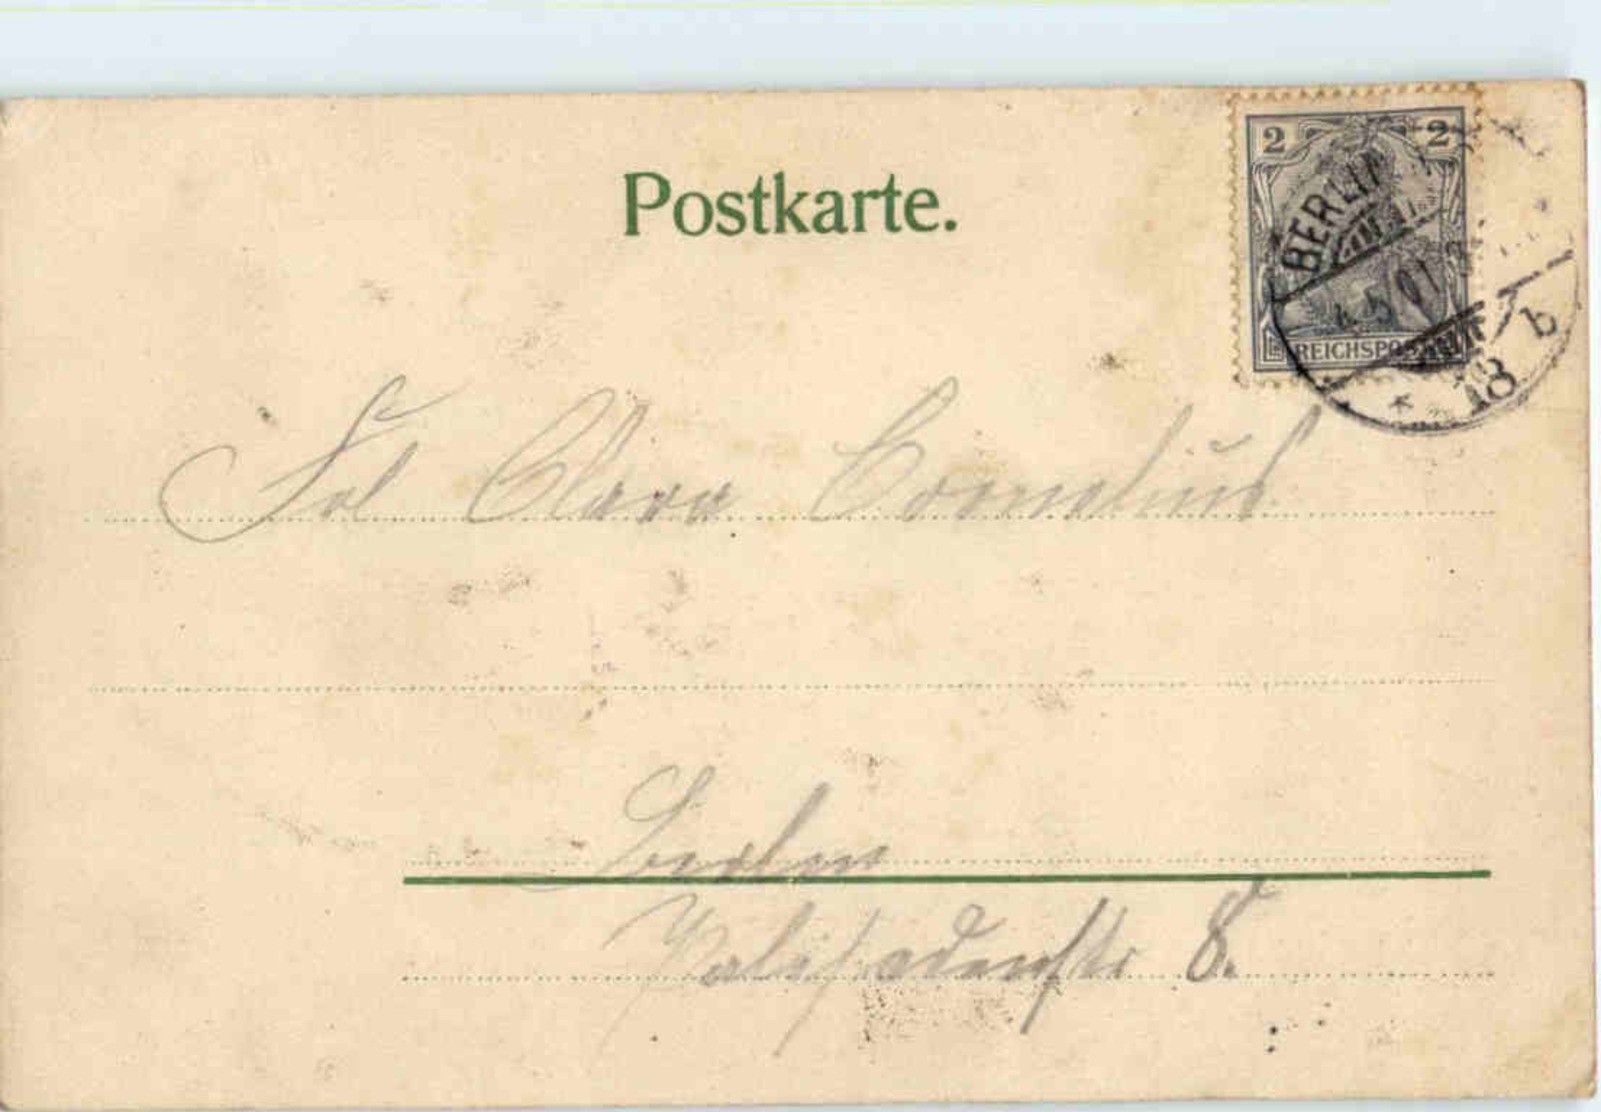 Postkarte.
2 2
BERLIN
5 01
REICHSPOST
* 18 b
Frl Clara Cornelius
Berlin
Palisadenstr 8.